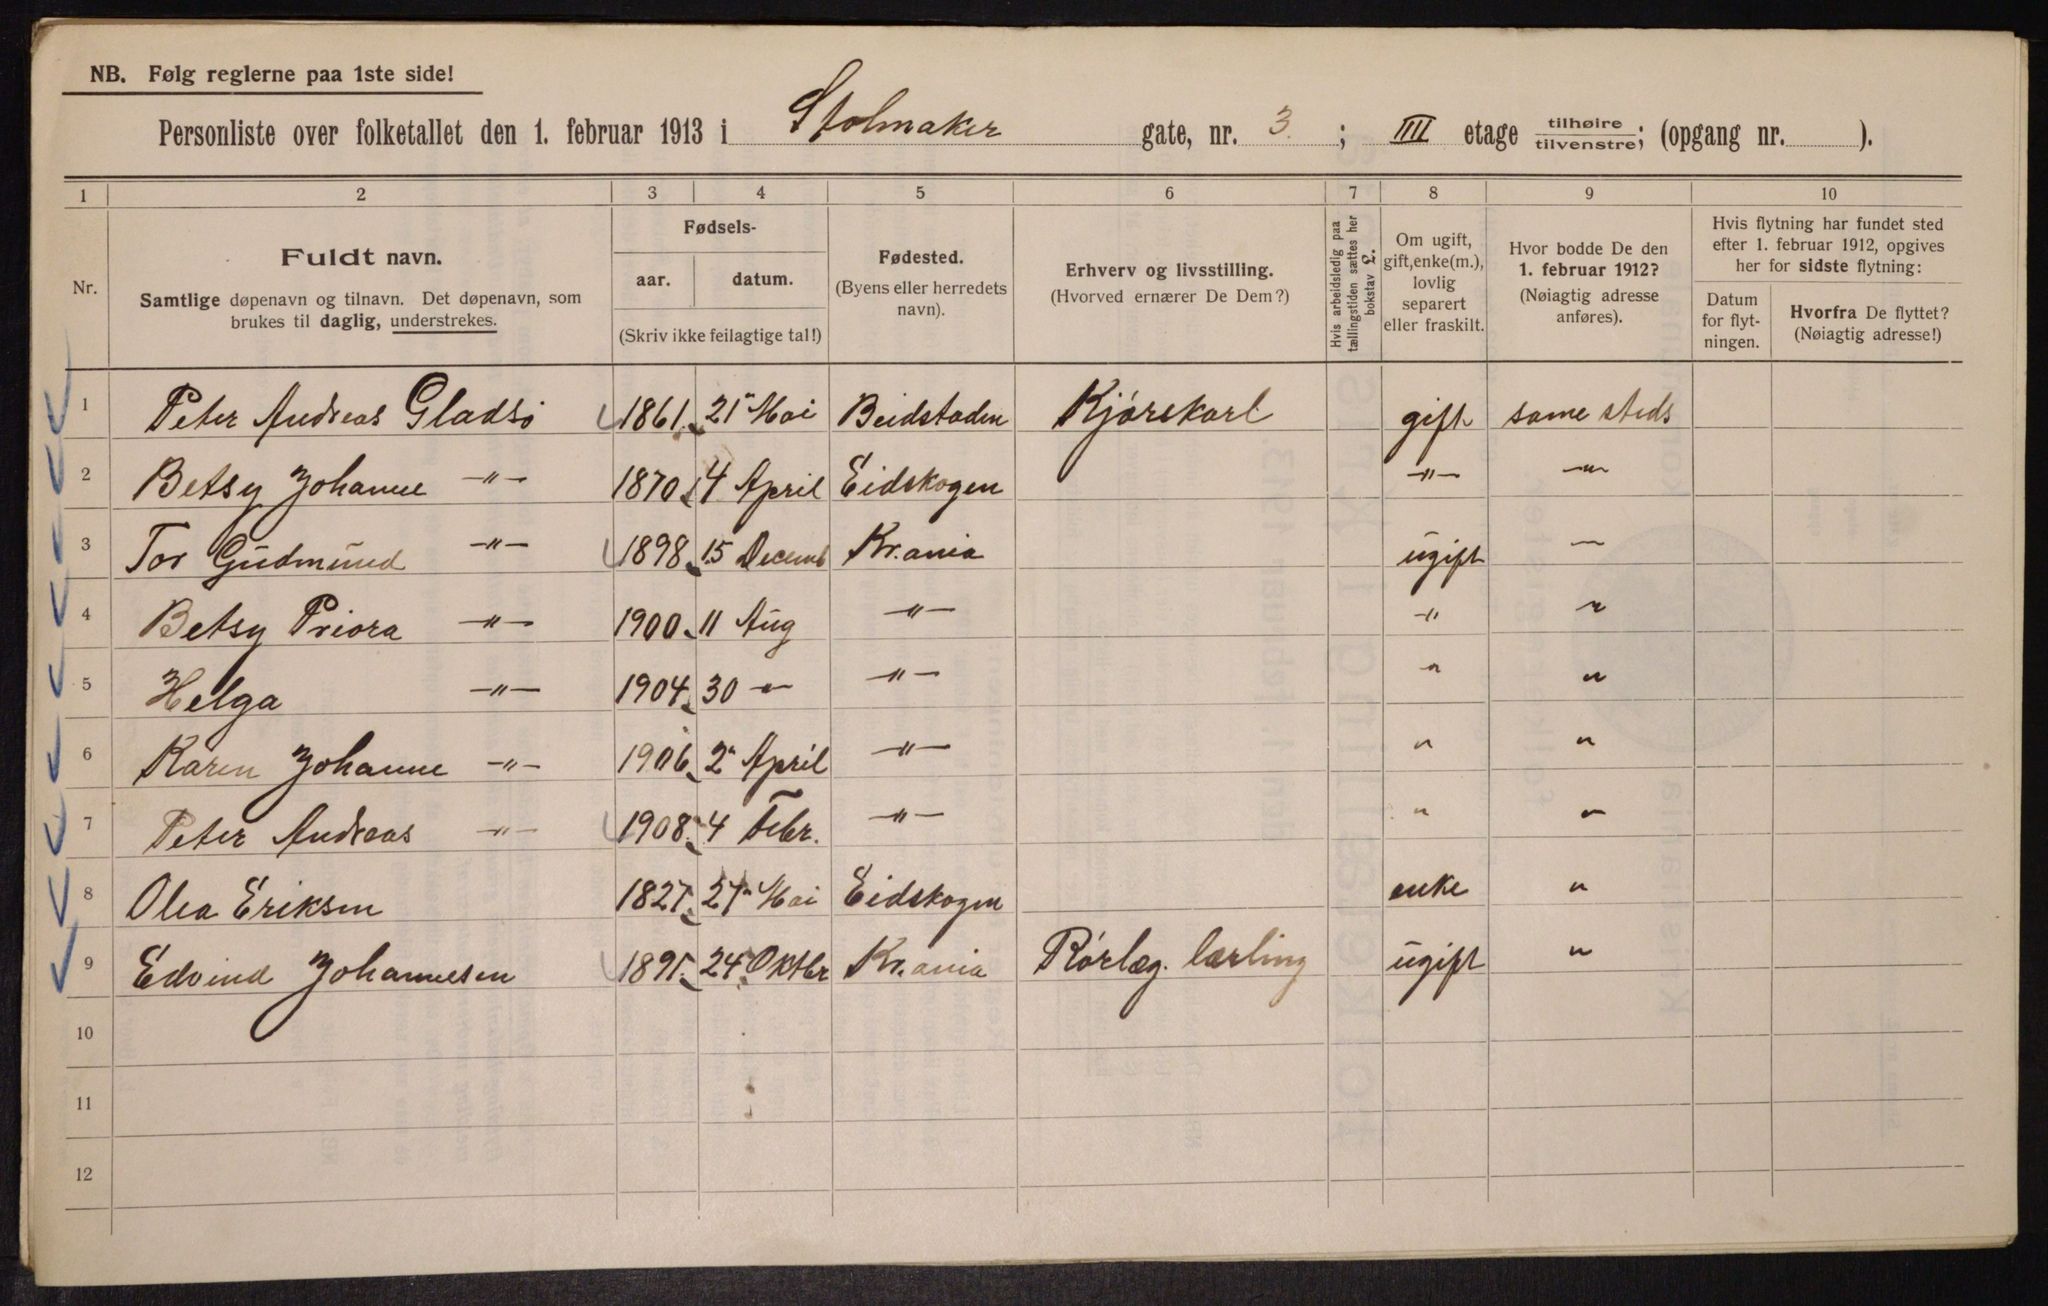 NB. Følg reglerne paa 1ste side!
Personliste over folketallet den 1. februar 1913 i Stolmaker gate, nr. 3. ; IIII etage tilhøire/tilvenstre; (opgang nr. ).
1 2 3 4 5 6 7 8 9 10
Nr.
Fuldt navn.
Samtlige døpenavn og tilnavn. Det døpenavn, som
brukes til daglig, understrekes.
Fødsels-
aar. datum.
(Skriv ikke feilagtige tal!)
Fødested.
(Byens eller herredets
navn).
Erhverv og livsstilling.
(Hvorved ernærer De Dem?)
Hvis arbeidsledig paa
tællingstiden sættes her
bokstav L.
Om ugift,
gift, enke(m.),
lovlig
separert
eller fraskilt.
Hvor bodde De den
1. februar 1912?
(Nøiagtig adresse
anføres).
Hvis flytning har fundet sted
efter 1. februar 1912, opgives
her for sidste flytning:
Datum
for flyt-
ningen.
Hvorfra De flyttet?
(Nøiagtig adresse!)
1 Peter Andreas Gladsø 1861. 21 Mai Beidstaden Kjørekarl gift same steds
2 Betsy Johanne -"- 1870. 4 April Eidskogen -"- -"-
3 Tor Gudmund -"- 1898. 15 Decemb Kr.ania ugift -"-
4 Betsy Priora -"- 1900. 11 Aug -"- -"- "
5 Helga -"- 1904. 30 -"- -"- " "
6 Karen Johanne -"- 1906. 2 April -"- " "
7 Peter Andreas -"- 1908. 4 Febr. -"- " "
8 Olea Eriksen 1827. 27 Mai Eidskogen enke "
9 Edvind Johannesen 1895. 24 Oktbr Kr.ania Rørlæg. lærling ugift "
10
11
12